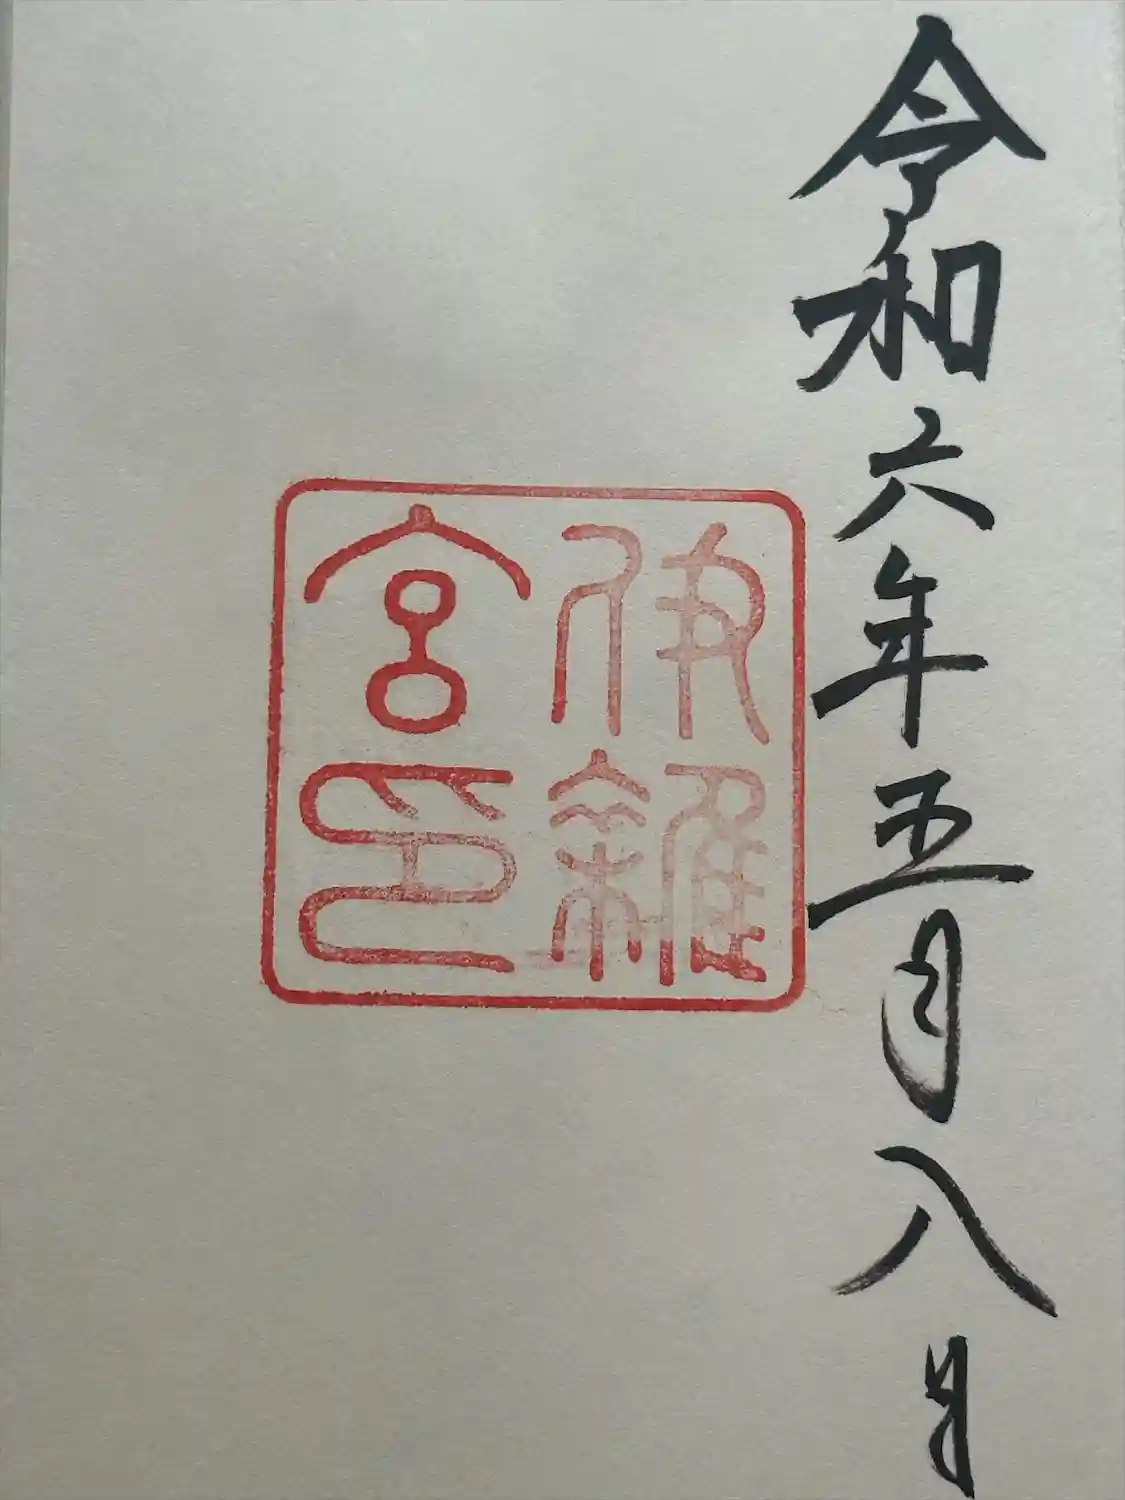 令和六年五月八日
伊雜
宮印